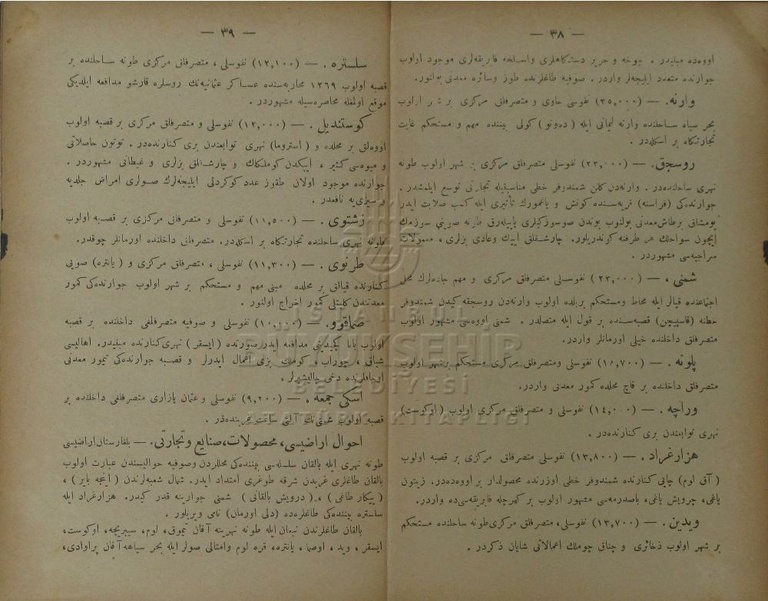 — ٣٨ —
اووه‌ده مبنیدر ، چوخه و حریر دستكاهلری واسلحه فابریقه‌لری موجود اولوب
جوارنده متعدد ایلیجه‌لر واردر . صوفیه طاغلرنده طوز وسائره معدنی بولنور.
وارنه . — (٣٥,٠٠٠) نفوسی حاوی و متصرفلق مركزی بر شهر اولوب
بحر سیاه ساحلنده وارنه لیمانی ایله (ده‌ونو) كولی بیننده مهم و مستحكم غایت
تجارتكاه بر اسكله‌در .
روسجق. — (٣٣,٠٠٠) نفوسلی متصرفلق مركزی بر شهر اولوب طونه
نهری ساحلنده‌در . وارنه‌دن كلن شمندوفر خطی مناسبتیله تجارتی توسع ایلمشدر .
جوارنده‌كی (فراسنه) قریه‌سنده كونش و یاغمورك تأثیری ایله كسب صلابت ایدر
یومشاق برطاش‌معدنی بولنوب بوندن صوسوزكیلری یاپیله‌رق طونه صوینی سوزمك
ایچون سواحلك هر طرفنه كوندریلور.
سراجیه‌سی مشهوردر .
شمنی . — (٢٣,٠٠٠) نفوسلی متصرفلق مركزی و مهم جاده‌لرك محل
اجتماعنده قیالر ایله محاط ومستحكم بربلده اولوب وارنه‌دن روسجغه كیدن شمندوفر
خطنه (قاسپیچن) قصبه‌سنده بر قول ایله متصلدر . شمنی اووه‌سی مشهور اولوب
متصرفلق داخلنده خیلی اورمانلر واردر.
پلونه . — نفوسلی ومتصرفلق مركزی مستحكم برشهر اولوب
متصرفلق داخلنده بر قاچ محلده كمور معدنی واردر.
وراچه . — (١٤,٠٠٠) نفوسلی ومتصرفلق مركزی اولوب (اوكوست)
نهری توابعندن بری كنارنده‌در .
هزارغراد . — (١٣,٨٠٠) نفوسلی متصرفلق مركزی بر قصبه اولوب
( آق لوم ) چایی كنارنده شمندوفر خطی اوزرنده محصولدار بر اووه‌ده‌در. زیتون
یاغی، چرویش یاغی، باصدرمه‌سی مشهور اولوب بر كهرچله فابریقه‌سی‌ده واردر.
ویدین . — (١٣,٧٠٠) نفوسلی، متصرفلق مركزی‌طونه ساحلنده مستحكم
بر شهر اولوب ذخائری و چناق چوملك اعمالاتی شایان ذكردر .
— ٣٩ —
سلستره . — (١٢,١٠٠) نفوسلی ، متصرفلق مركزی طونه ساحلنده بر
قصبه اولوب ١٢٦٩ محاربه‌سنده عساكر عثمانیه‌نك روسلره قارشو مدافعه ایلدیكی
موقع اولمغله محاصره‌سیله مشهوردر .
كوستندیل . — (١٢,٠٠٠) نفوسلی و متصرفلق مركزی بر قصبه اولوب
اووه‌لق بر محلده و (استروما) نهری توابعندن بری كنارنده‌در . توتون حاصلاتی
و میوه‌سی كثیر ، ایپكدن كوملكلك و چارشافلق بزلری و غیطانی مشهوردر .
جوارنده موجود اولان طقوز عدد كوكردلی ایلیجه‌لرك صولری امراض جلدیه
نافعدر .
زشتوی . — (١١,٥٠٠) نفوسلی و متصرفلق مركزی بر قصبه اولوب
طونه نهری ساحلنده تجارتكاه بر اسكله‌در. متصرفلق داخلنده اورمانلر چوقدر.
طرنوی . — (١١,٣٠٠) نفوسلی ، متصرفلق مركزی و ( یانتره) صویی
كنارنده قیالق بر محلده مبنی مهم و مستحكم بر شهر اولوب جوارنده‌كی كمور
معدنندن كلیتلی كمور اخراج اولنور .
نفوسلی و صوفیه متصرفلغی داخلنده بر قصبه
اولوب (ایسقر) نهری‌كنارنده مبنیدر. اهالیسی
شیاق ، چوراب ، كوملك بزی اعمال ایدرلر و قصبه جوارنده‌كی تیمور معدنی
دخی چالیشیرلر .
اسكی جمعه . — (٩,٢٠٠) نفوسلی و عثمان بازاری متصرفلغی داخلنده بر
قصبه اولوب
احوال اراضیسی ، محصولات ، صنایع وتجارتی. — بلغارستان‌اراضیسی
طونه نهری ایله بالقان سلسله‌سی بیننده‌كی محللردن وصوفیه حوالیسندن عبارت اولوب
بالقان طاغلری غربدن شرقه طوغری امتداد ایدر. شمال شعبه‌لرندن ( ایغچه بایر ) ،
( بیكار طاغی ) ، ( درویش بالقانی ) شمنی جوارینه قدر كیدر. هزارغراد ایله
سلستره بیننده‌كی طاغلره‌ده (دلی اورمان) نامی ویریلور .
بالقان طاغلرندن نبعان ایله طونه نهرینه آقان تیموق، لوم، سیبریچه، اوكوست،
ایسقر ، وید ، اوصما ، یانتره، قره لوم وامثالی صولر ایله بحر سیاهه آقان پراوادی،
ISTANBUL
BÜYÜKŞEHİR
BELEDİYESİ
ATATÜRK KİTAPLIĞI